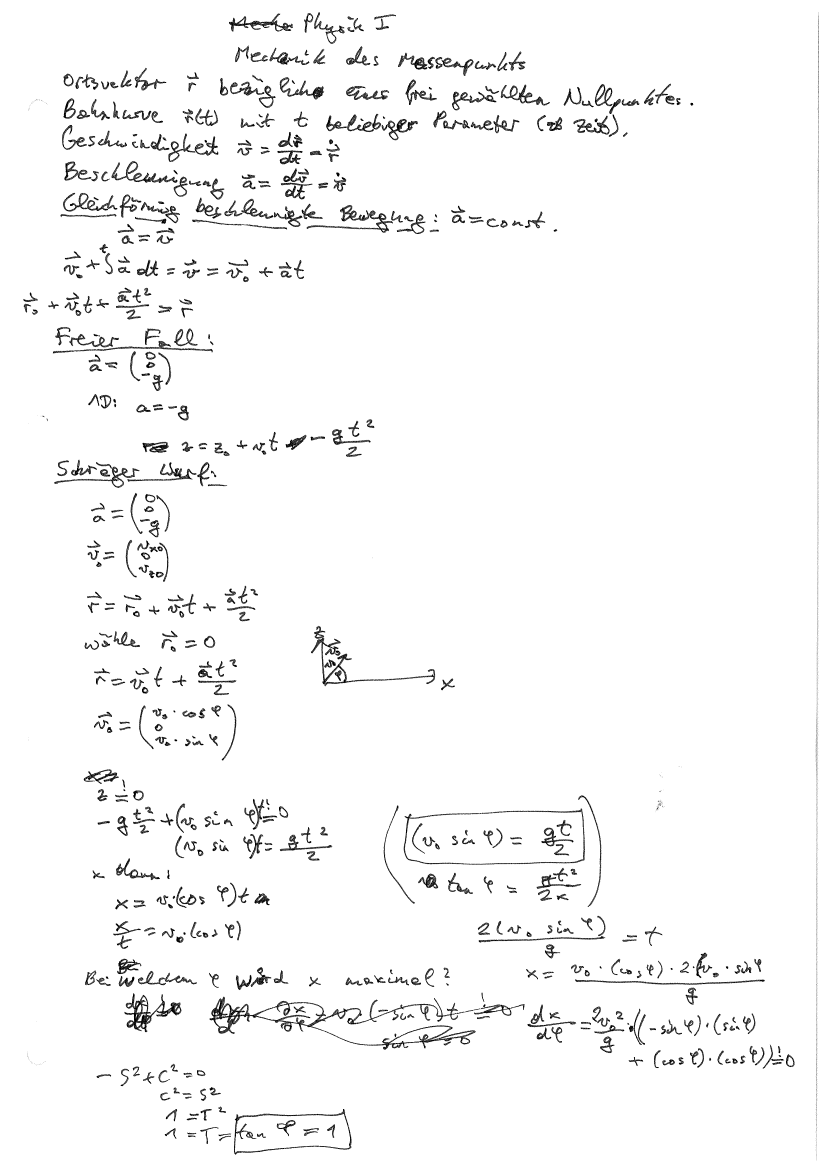 Physik I
Mechanik des Massenpunkts
Ortsvektor r⃗ bezüglich eines frei gewählten Nullpunktes.
Bahnkurve r⃗(t) mit t beliebiger Parameter (zb Zeit).
Geschwindigkeit v⃗ = dr⃗/dt = r⃗̇
Beschleunigung a⃗ = dv⃗/dt = v⃗̇
Gleichförmig beschleunigte Bewegung: a⃗ = const.
a⃗ = v⃗̇
v⃗₀ + ∫ᵗ a⃗ dt = v⃗ = v⃗₀ + a⃗t
r⃗₀ + v⃗₀t + a⃗t²/2 = r⃗
Freier Fall:
a⃗ = (0 0 -g)
1D: a = -g
z = z₀ + v₀t - gt²/2
Schräger Wurf:
a⃗ = (0 0 -g)
v⃗₀ = (vx0 0 vz0)
r⃗ = r⃗₀ + v⃗₀t + a⃗t²/2
wähle r⃗₀ = 0
r⃗ = v⃗₀t + a⃗t²/2
z
v⃗₀
v₀
φ
x
v⃗₀ = (v₀·cos φ 0 v₀·sin φ)
z =! 0
-g t²/2 + (v₀ sin φ)t =! 0
(v₀ sin φ)t = gt²/2
(v₀ sin φ) = gt/2
tan φ = gt²/2x
x dann:
x = v₀·(cos φ)t
x/t = v₀·(cos φ)
2(v₀ sin φ)/g = t
x = v₀·(cos φ)·2·(v₀·sin φ/g
Bei welchem φ wird x maximal?
dx/dφ = 2v₀²/g·((-sin φ)·(sin φ)
+ (cos φ)·(cos φ)) =! 0
-S² + C² = 0
C² = S²
1 = T²
1 = T = tan φ = 1